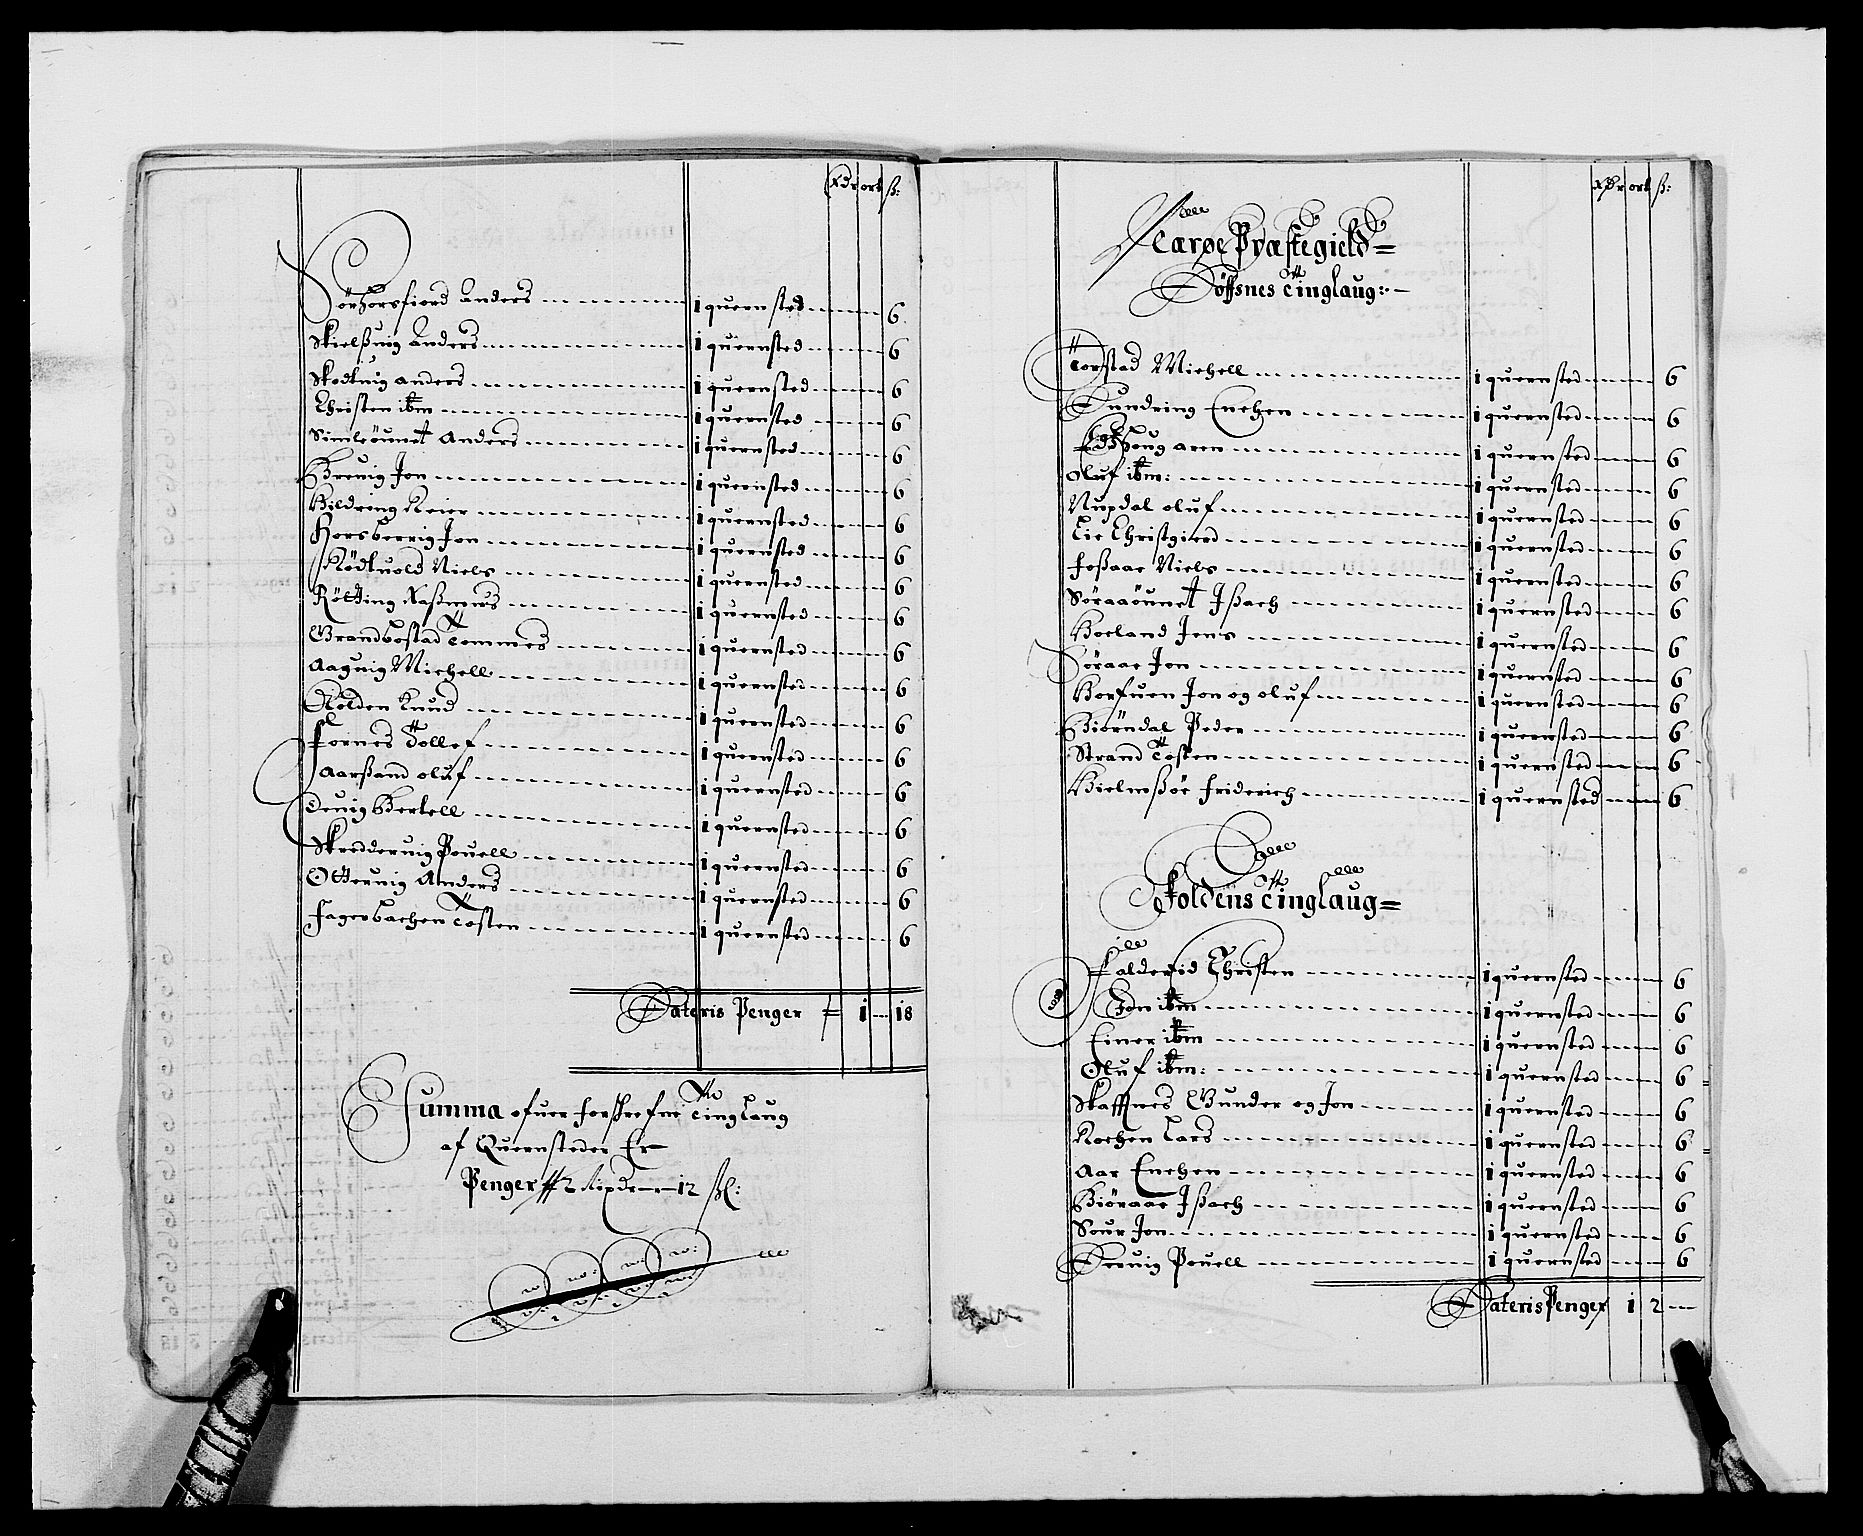 Rdr ort ß:
Sörhorsfiord Anders 1 quernsted 6
Skielßuig Anders 1 quernsted 6
Skodtuig anders 1 quernsted 6
Christen ibm 1 quernsted 6
Simleöunet Anders 1 quernsted 6
Breuig Jon 1 quernsted 6
Hildring Reier 1 quernsted 6
Horsberrig Jon 1 quernsted 6
Ködtuold Niels 1 quernsted 6
Rötting Raßmus 1 quernsted 6
Brandbostad Tommes 1 quernsted 6
Aaguig Michell 1 quernsted 6
Holden Knud 1 quernsted 6
Fornes Tollef 1 quernsted 6
Aarßand oluf 1 quernsted 6
Deuig Bertell 1 quernsted 6
Skredderuig Pouell 1 quernsted 6
Otteruig Anders 1 quernsted 6
Fagerbachen Tosten 1 quernsted 6
Lateris Penger 1 18
Summa ofuer forskrefne Tinglaug
af Quernsteder Er
Penger 2 Rixdr 12 ßl:
Rdr ort ß:
Nærøe Præstegield
Töffsnes Tinglaug:
Torstad Michell 1 quernsted 6
Sundring Enchen 1 quernsted 6
Edshoug aren 1 quernsted 6
Oluf ibm: 1 quernsted 6
Nupdal oluf 1 quernsted 6
Lie Christgierd 1 quernsted 6
Foßaae Niels 1 quernsted 6
Söraaöunet Jßach 1 quernsted 6
Hoeland Jens 1 quernsted 6
Söraae Jon 1 quernsted 6
Horfuen Jon og oluf 1 quernsted 6
Biörndal Peder 1 quernsted 6
Strand Tosten 1 quernsted 6
Hielmßöe friderich 1 quernsted 6
Foldens Tinglaug
Faldereid Christen 1 quernsted 6
Jon ibm 1 quernsted 6
Einer ibm 1 quernsted 6
Oluf ibm: 1 quernsted 6
Skaffnes Gunder og Jon 1 quernsted 6
Kochen Lars 1 quernsted 6
Aar Enchen 1 quernsted 6
Biöraae Jßach 1 quernsted 6
Sour Jon 1 quernsted 6
Seuig Pouell 1 quernsted 6
Lateris Penger 1 2